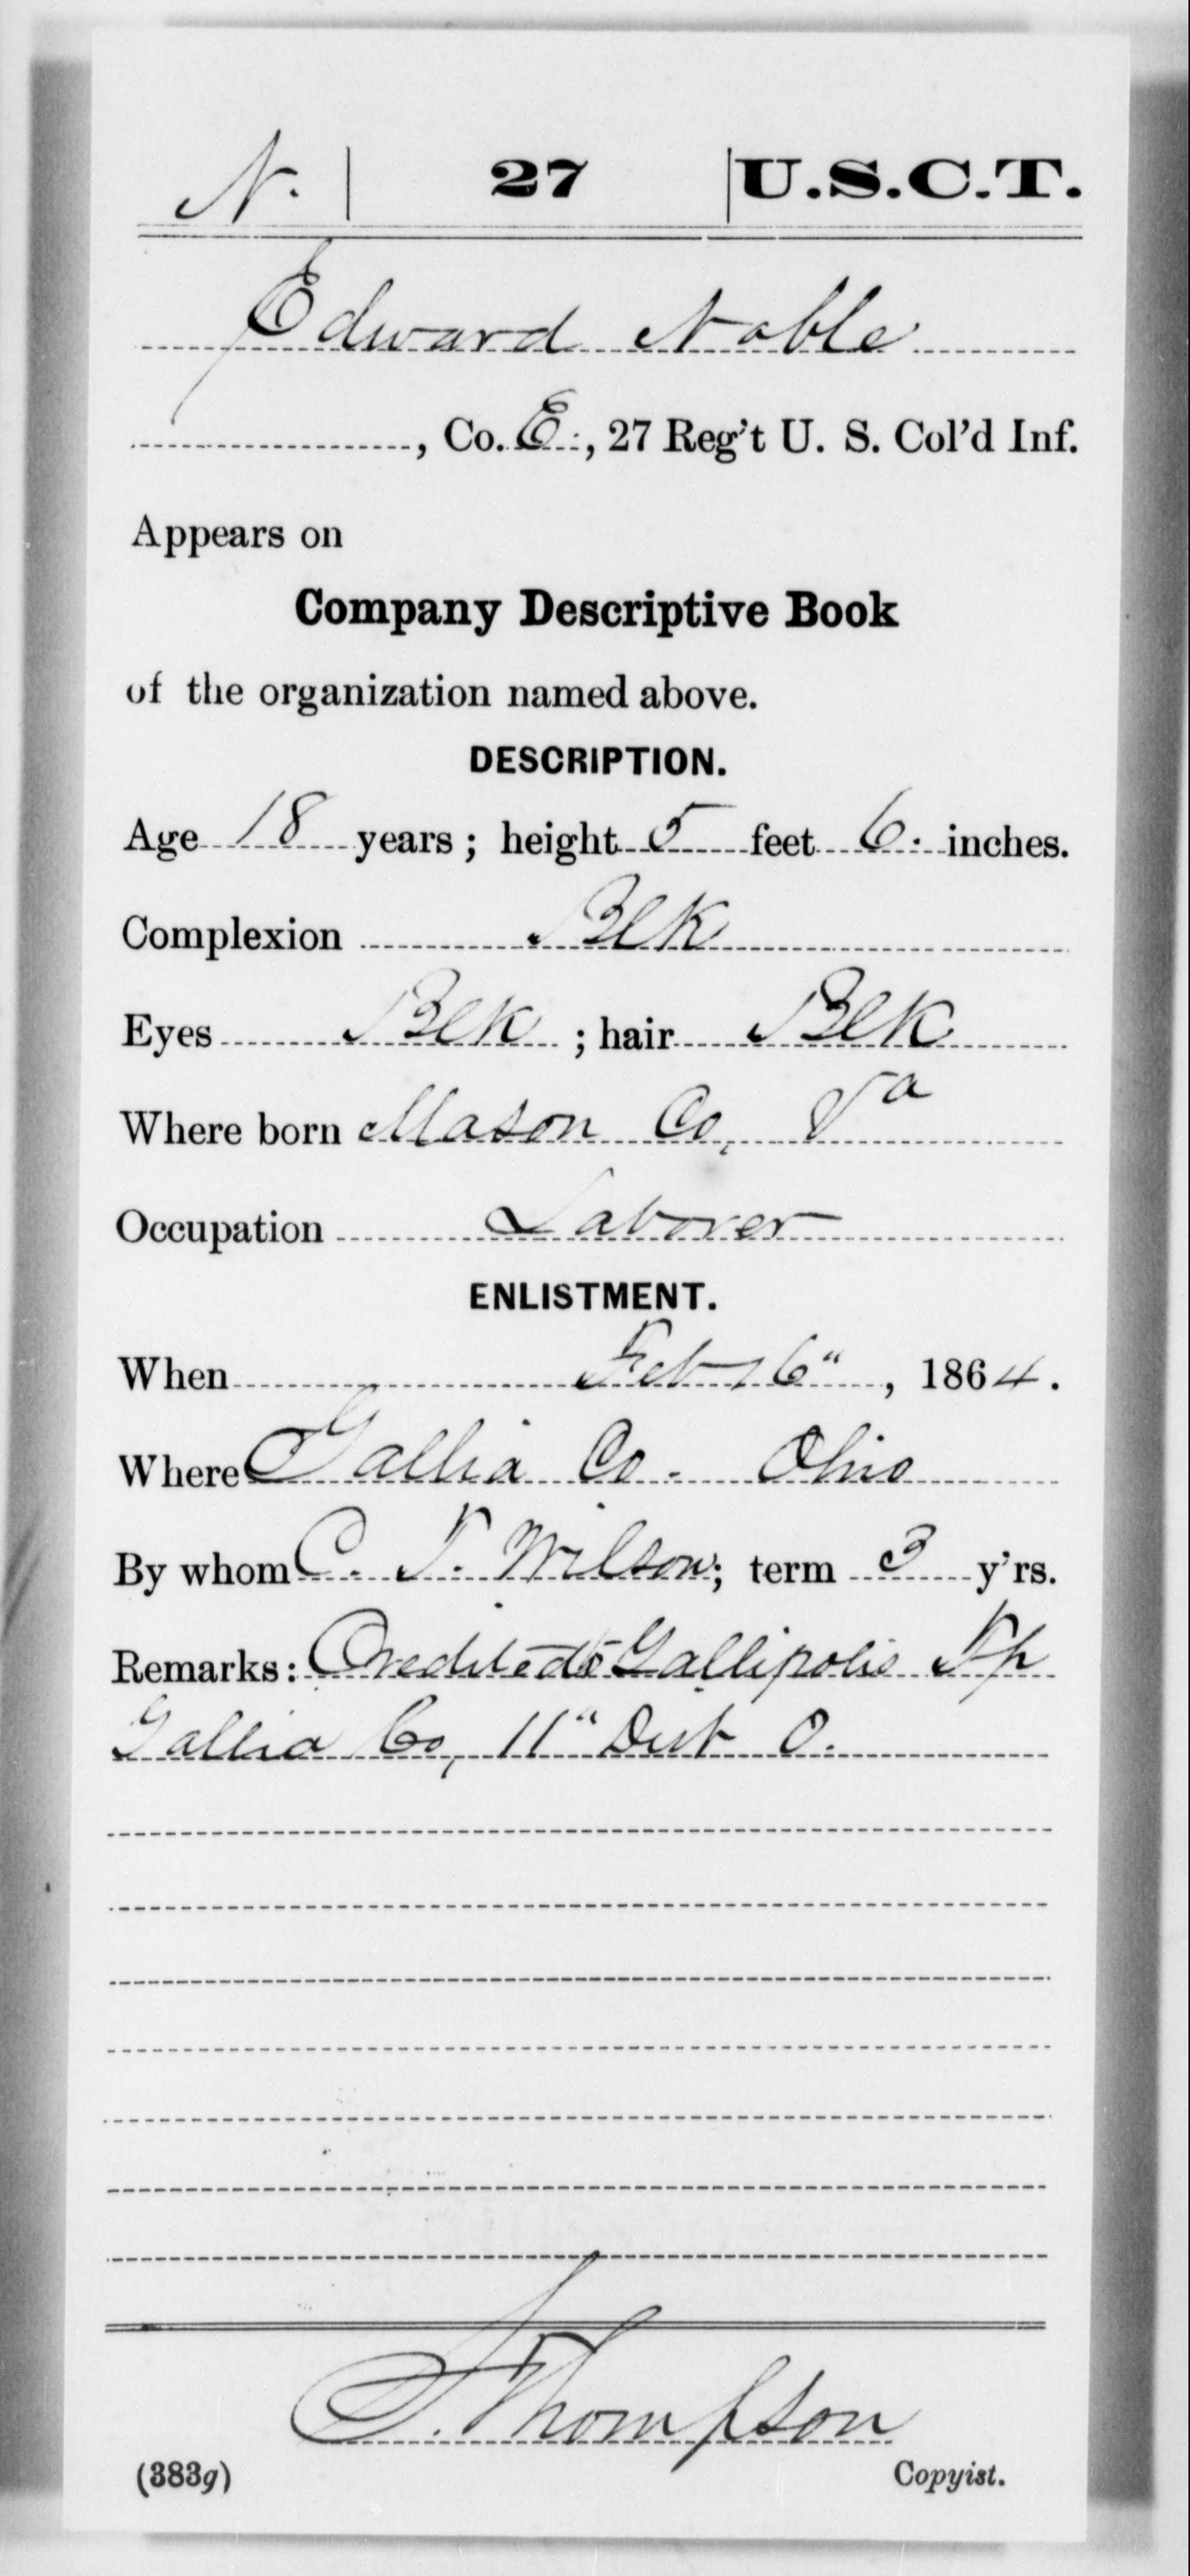 N. | 27 | U.S.C.T.
Edward Noble
, Co. E., 27 Reg't U. S. Col'd Inf.
Appears on
Company Descriptive Book
of the organization named above.
DESCRIPTION.
Age 18 years; height 5 feet 6. inches.
Complexion Blk
Eyes Blk; hair Blk
Where born Mason Co, Va
Occupation Laborer
ENLISTMENT.
When Feb 16", 1864.
Where Gallia Co. Ohio
By whom C. T. Wilson; term 3 y'rs.
Remarks: Credited to Gallipolis Tp
Gallia Co, 11" Dist O.
Thompson
(383g) Copyist.